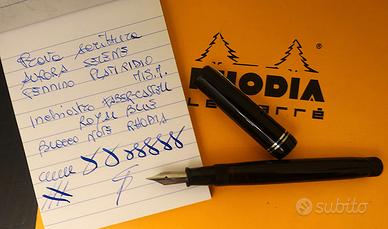 Prova scrittura
AURORA SELENE
PENNINO PLATIRIDIO
M.S.M.
Inchiostro FABER-CASTELL
ROYAL BLUE
BLOCCO NOTE RHODIA
RHODIA
LE CARRÉ
subito